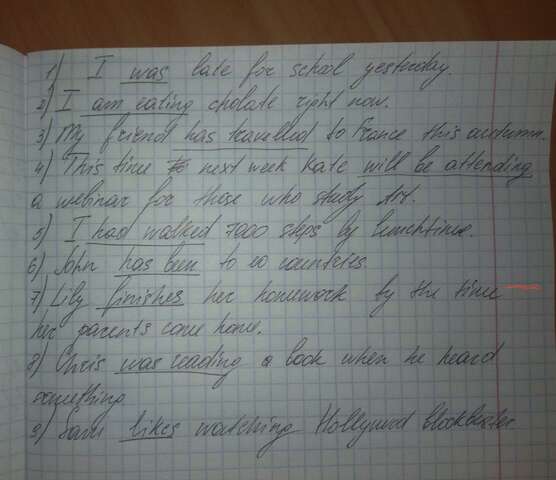 1) I was late for school yesterday.
2) I am eating cholate right now.
3) My friend has travelled to France this autumn.
4) This time next week Kate will be attending
a webinar for those who study Art.
5) I had walked 7000 steps by lunchtime.
6) John has been to 20 countries.
7) Lily finishes her homework by the time
her parents come home.
8) Chris was reading a book when he heard
something
9) Sam likes watching Hollywood blockbuster